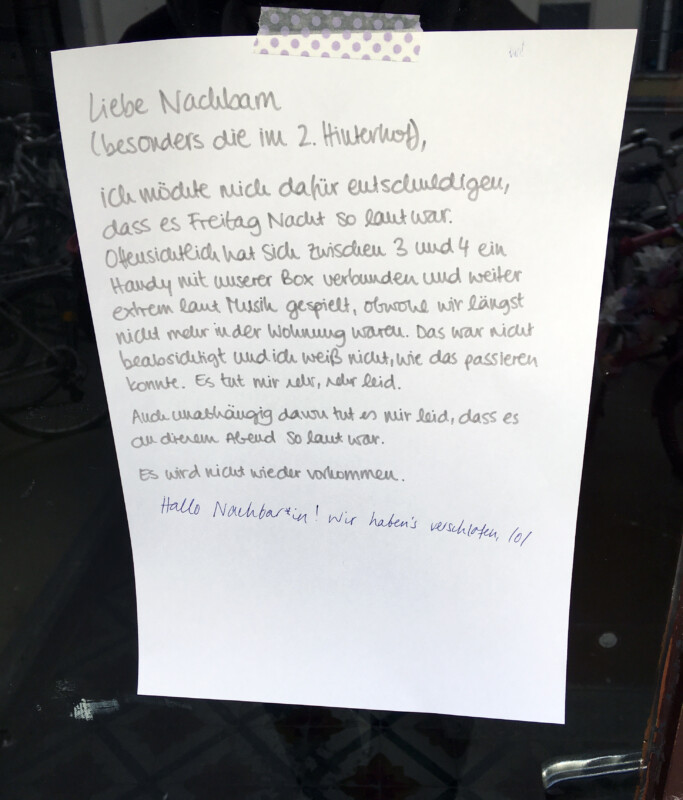 Liebe Nachbarn
(besonders die im 2. Hinterhof),
ich möchte mich dafür entschuldigen,
dass es Freitag Nacht so laut war.
Offensichtlich hat sich zwischen 3 und 4 ein
Handy mit unserer Box verbunden und weiter
extrem laut Musik gespielt, obwohl wir längst
nicht mehr in der Wohnung waren. Das war nicht
beabsichtigt und ich weiß nicht, wie das passieren
konnte. Es tut mir sehr, sehr leid.
Auch unabhängig davon tut es mir leid, dass es
an diesem Abend so laut war.
Es wird nicht wieder vorkommen.
Hallo Nachbar*in! Wir haben's verschlafen, lol